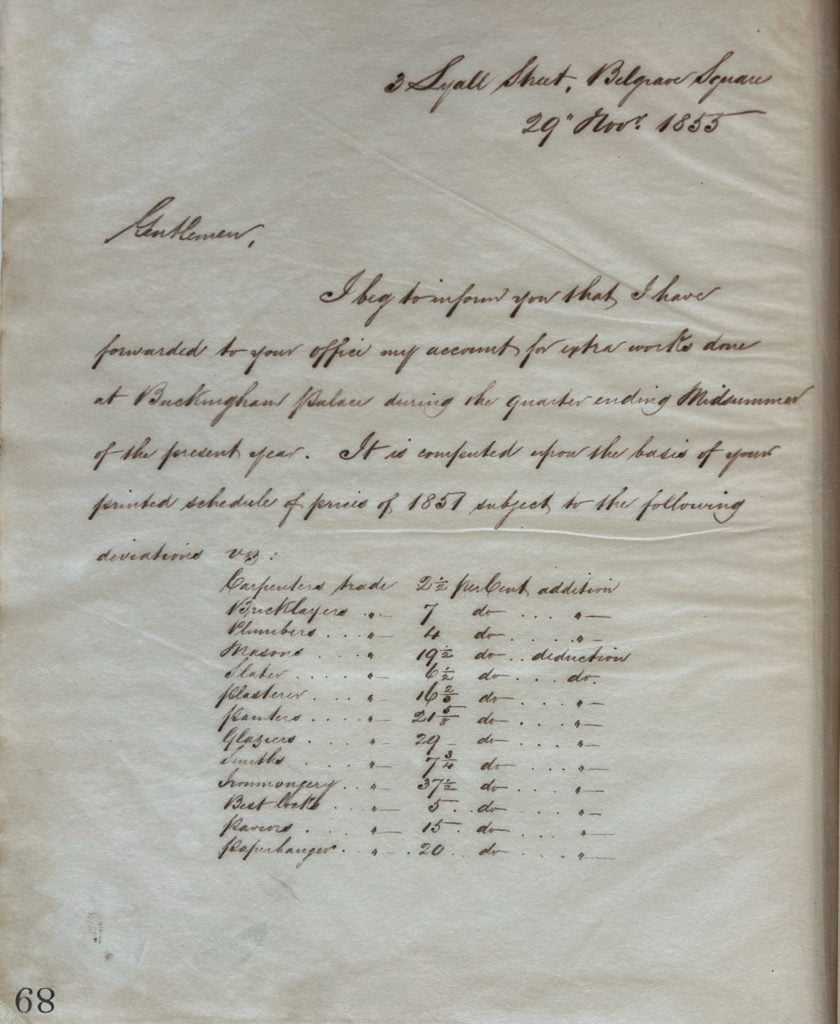 3 Lyall Street, Belgrave Square
29" Novr. 1855
Gentlemen,
I beg to inform you that I have
forwarded to your office my account for extra works done
at Buckingham Palace during the quarter ending Midsummer
of the present year. It is computed upon the basis of your
printed schedule of prices of 1851 subject to the following
deviations viz:
Carpenters trade 2 1/2 per Cent addition
Bricklayers . " — 7 do — . . . " —
Plumbers . . . " — 4 do — . . . " —
Masons . . . . " — 19 1/2 do . . deduction
Slater . . . . . " — 6 1/2 do — . . . do.
Plasterer . . . " — 16 do — . . . " —
Painters . . . . " — 21 do — . . . " —
Glaziers . . . . " — 29 — do — . . . " —
Smiths . . . . " — 7 3/4 do — . . . " —
Ironmongery . . " — 37 1/2 do — . . . " —
Best locks . . . " — 5 . do — . . . " —
Paviors . . . . " — 15 . do — . . . " —
Paperhanger . . " — 20 . . do — . . . " —
68